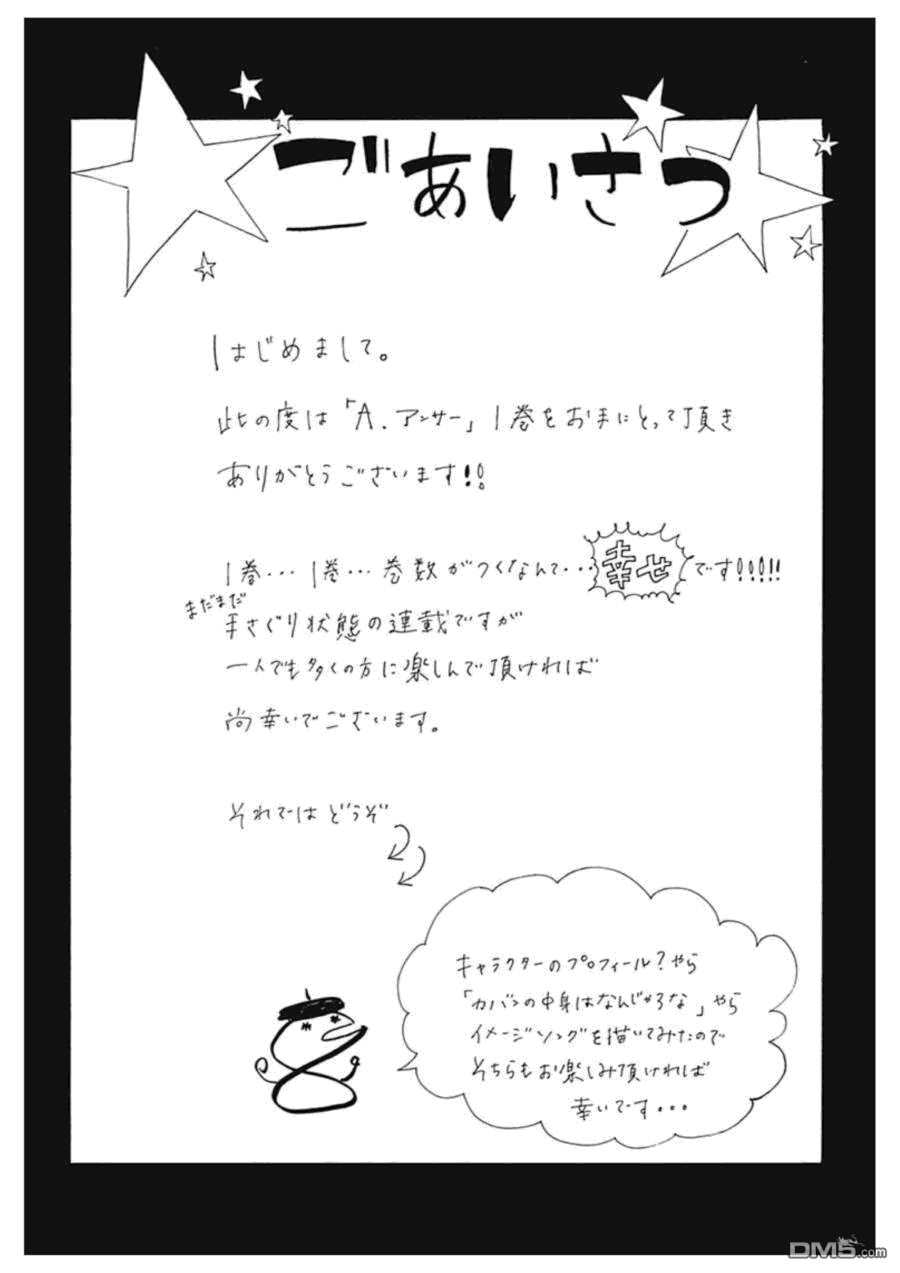 ごあいさつ
はじめまして。
此の度は「A.アンサー」1巻をお手にとって頂き
ありがとうございます!!
1巻…1巻…巻数がつくなんて…幸せです!!!!!
まだまだ
手さぐり状態の連載ですが
一人でも多くの方に楽しんで頂ければ
尚幸いでございます。
それではどうぞ
キャラクターのプロフィール?やら
「カバンの中身はなんじゃろな」やら
イメージソングを描いてみたので
そちらもお楽しみ頂ければ
幸いです…
DM5.com